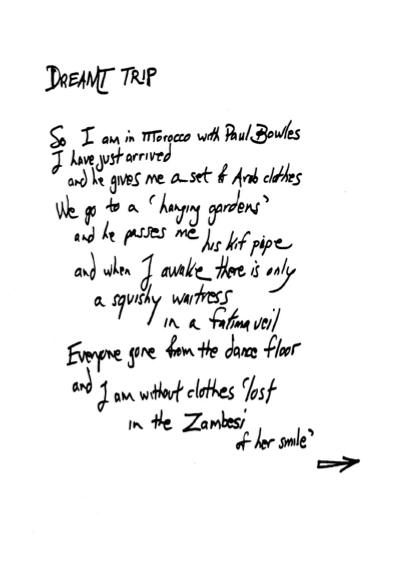 DREAMT TRIP
So I am in Morocco with Paul Bowles
I have just arrived
and he gives me a set of Arab clothes
We go to a 'hanging gardens'
and he passes me his kif pipe
and when I awake there is only
a squishy waitress
in a fatima veil
Everyone gone from the dance floor
and I am without clothes 'lost
in the Zambesi
of her smile'